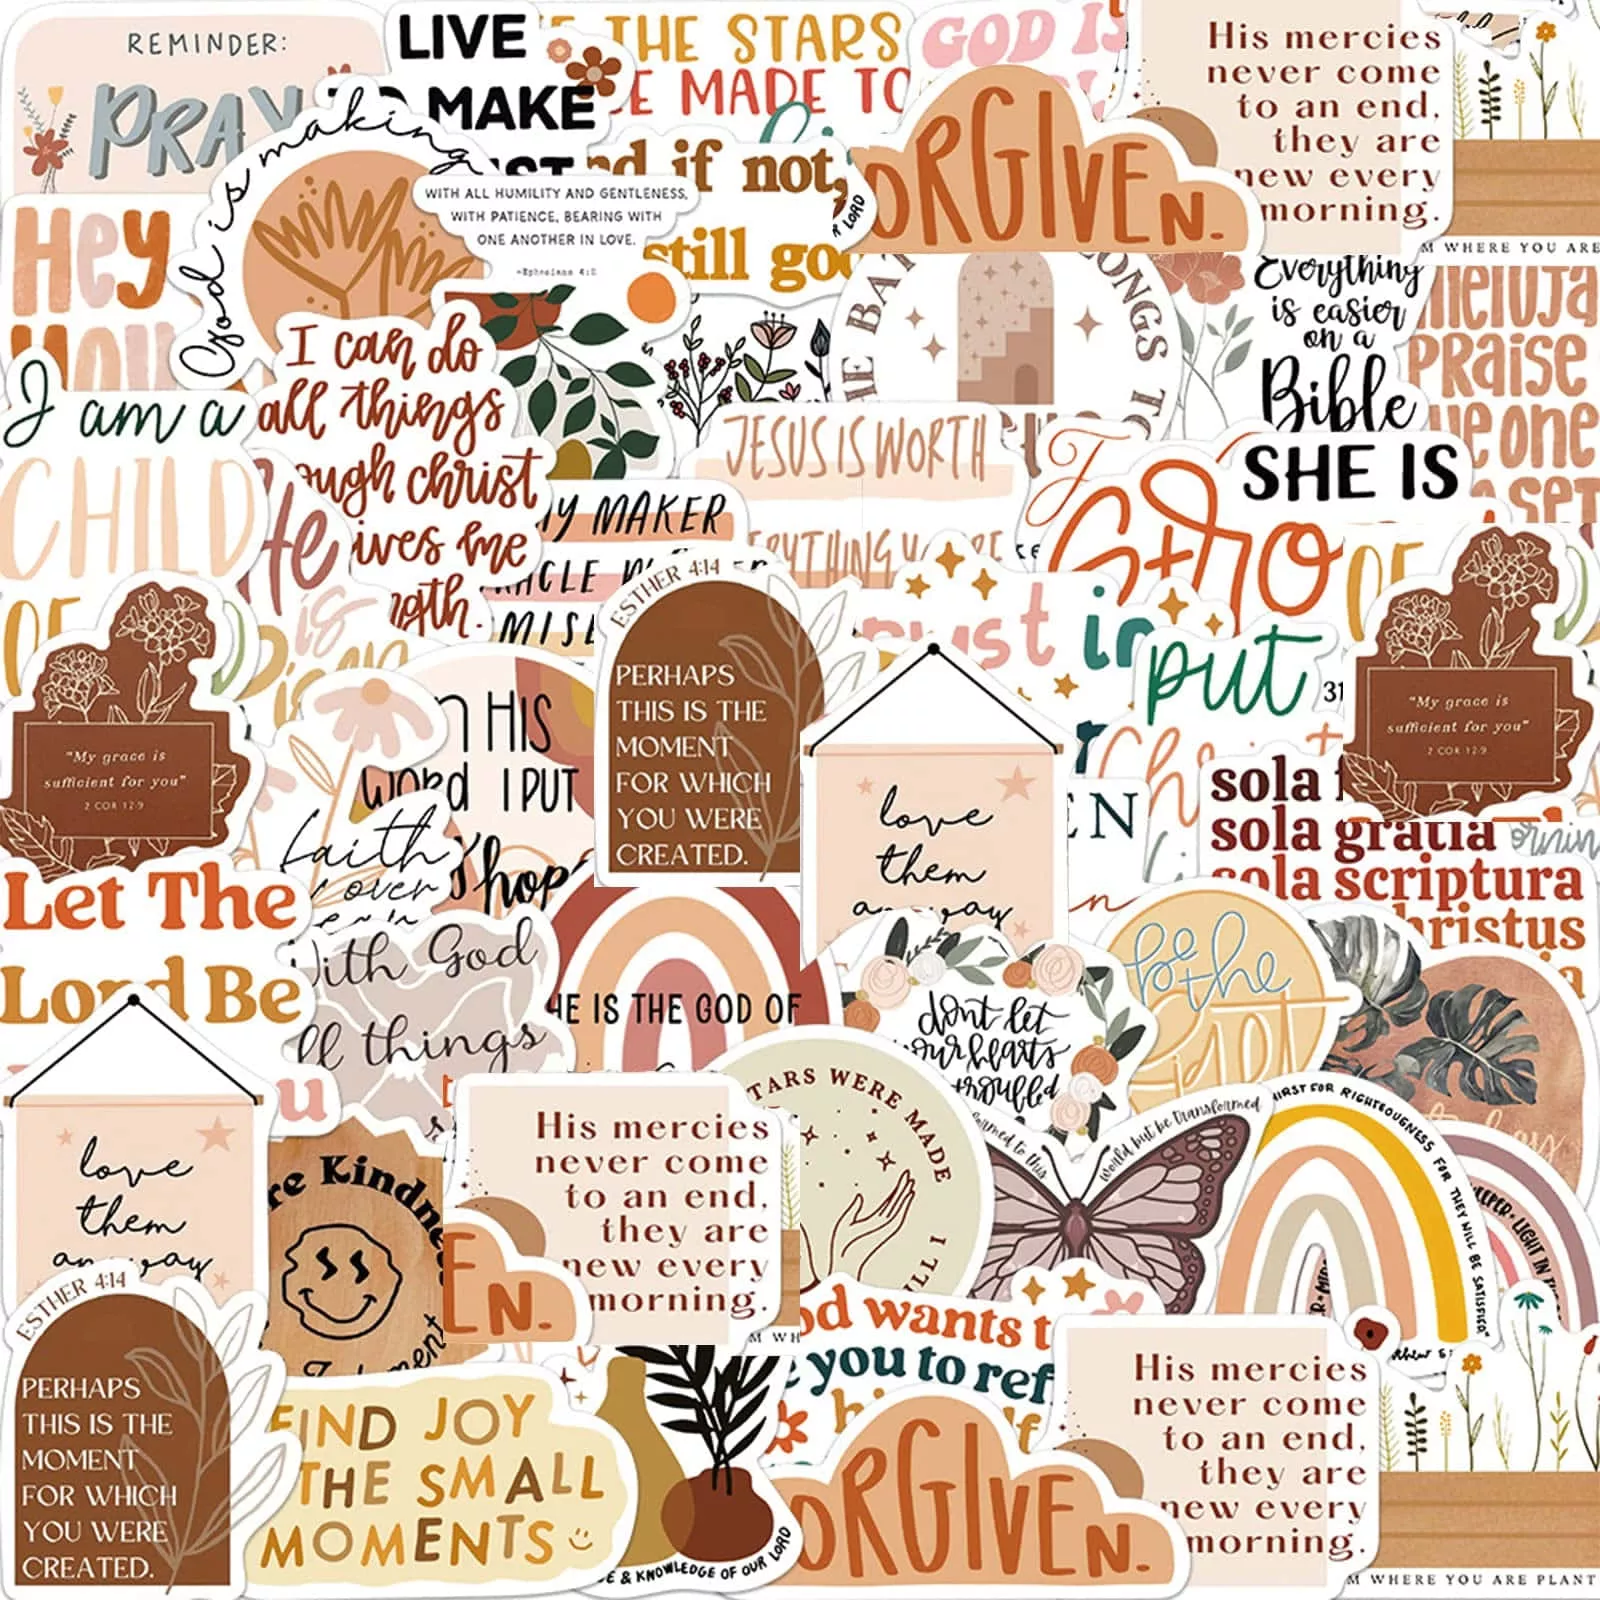 REMINDER:
PRAY
LIVE
TO MAKE
THE STARS
MADE TO
GOD IS
FORGIVEN.
His mercies
never come
to an end,
they are
new every
morning.
M WHERE YOU ARE
God is making
WITH ALL HUMILITY AND GENTLENESS,
WITH PATIENCE, BEARING WITH
ONE ANOTHER IN LOVE.
~Ephesians 4:2
if not,
still good
LORD
Hey
You
I can do
all things
through christ
gives me
I am a
CHILD
OF
He
is
JESUS IS WORTH
EVERYTHING
WAY MAKER
MIRACLE
ONGS TO
Everything
is easier
on a
Bible
PRAISE
ONE
SET
SHE IS
Strong
ESTHER 4:14
PERHAPS
THIS IS THE
MOMENT
FOR WHICH
YOU WERE
CREATED.
trust in
put
31
Christ
"My grace is
sufficient for you"
2 COR 12:9
"My grace is
sufficient for you"
2 COR 12:9
IN HIS
WORD I PUT
hope
faith
over
fear
love
them
anyway
sola
sola gratia
sola scriptura
christus
Let The
Lord Be
With God
all things
HE IS THE GOD OF
don't let
your hearts
troubled
be the
STARS WERE MADE
WILL I
World but be transformed
to this
THIRST FOR RIGHTEOUSNESS FOR THEY WILL BE SATISFIED"
LIGHT IN
love
them
anyway
More Kindness
Judgment
His mercies
never come
to an end,
they are
new every
morning.
EN.
M WH
God wants to
you to
ESTHER 4:14
PERHAPS
THIS IS THE
MOMENT
FOR WHICH
YOU WERE
CREATED.
FIND JOY
THE SMALL
MOMENTS
& KNOWLEDGE OF OUR LORD
FORGIVEN.
His mercies
never come
to an end,
they are
new every
morning.
M WHERE YOU ARE PLANT